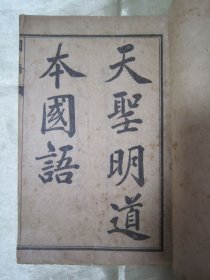 天聖明道
本國語